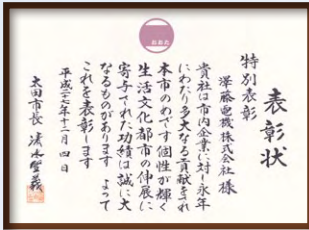 おおた
表彰状
特別表彰
澤藤電機株式会社 様
貴社は市内企業に対し永年
にわたり多大なる貢献をされ
本市のめざす個性が輝く
生活文化都市の伸展に
寄与された功績は誠に大
なるものがあります よって
これを表彰します
平成二十七年十二月四日
太田市長 清水聖義